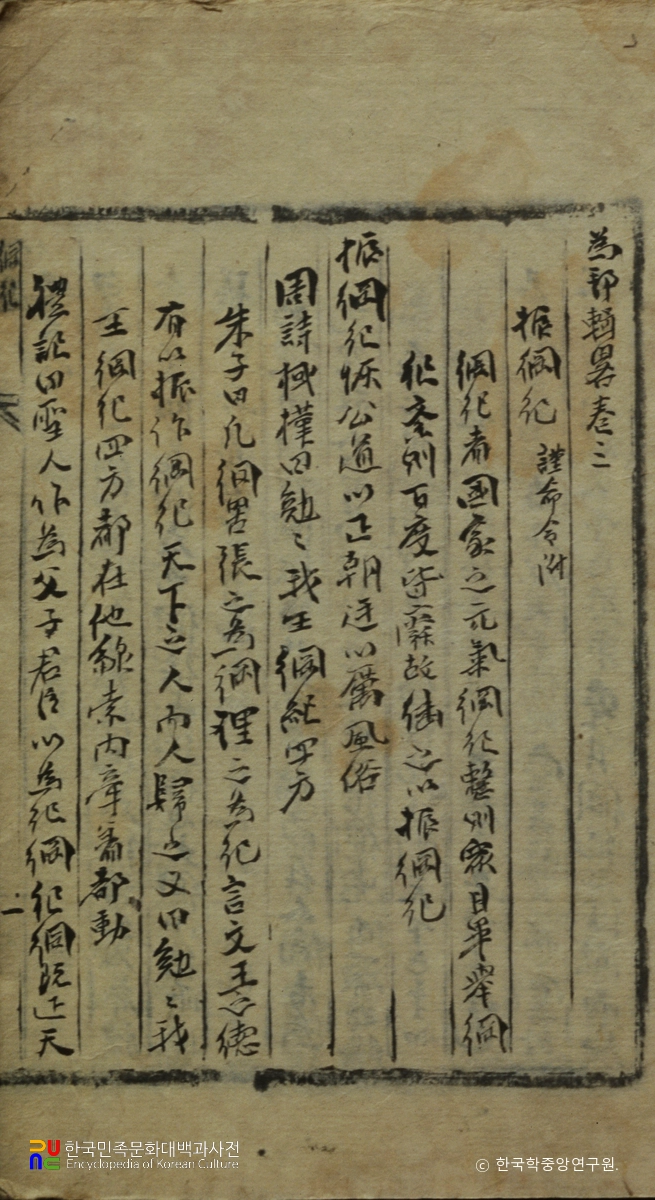 為邦輯畧卷三
振綱紀 謹命令附
綱紀者國家之元氣綱紀整則衆目畢擧綱
紀紊則百度皆廢故繼之以振綱紀
振綱紀恢公道以正朝廷以厲風俗
周詩棫樸曰勉〻我王綱紀四方
朱子曰凡綱罟張之為綱理之為紀言文王之德
有以振作綱紀天下之人而人歸之又曰勉〻我
王綱紀四方都在他線索內牽着都動
禮記曰聖人作為父子君臣以為紀綱紀綱既正天
綱紀
一
한국민족문화대백과사전
Encyclopedia of Korean Culture
© 한국학중앙연구원.